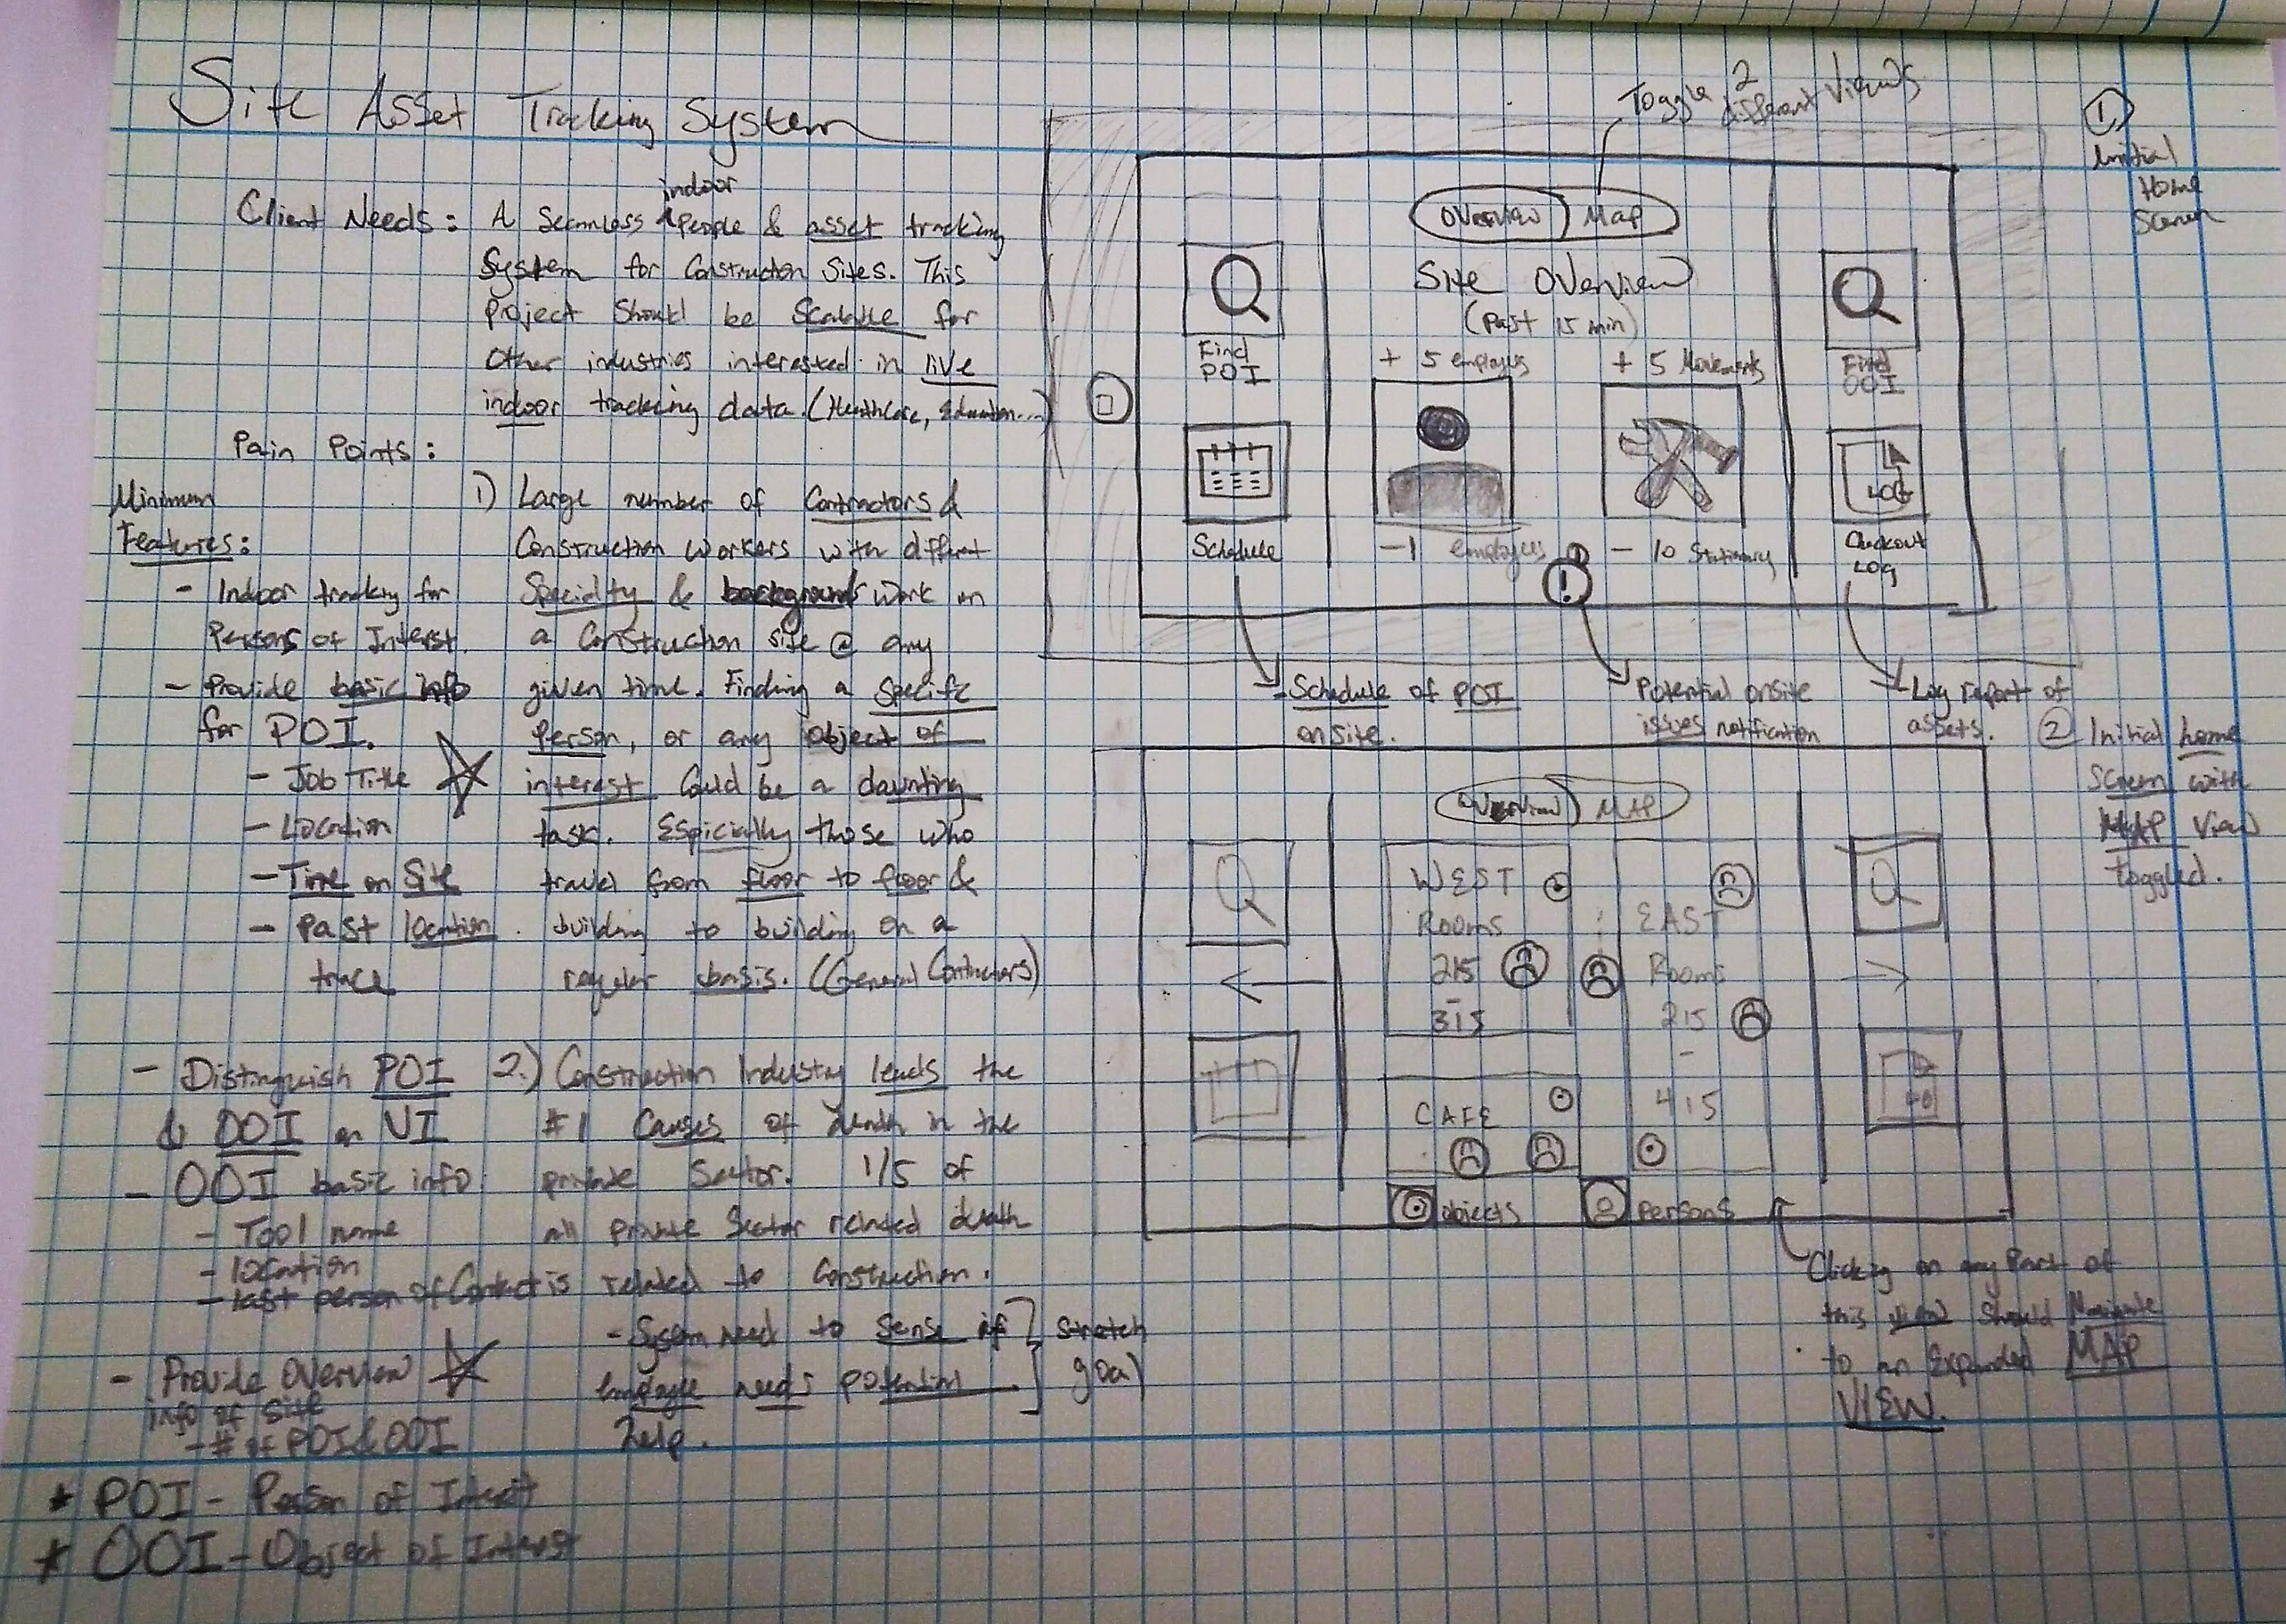 Site Asset Tracking System
Client Needs: A Seamless indoor People & asset tracking
System for Construction Sites. This
Project Should be Scalable for
Other industries interested in live
indoor tracking data. (Healthcare, Education...)
Pain Points:
1) Large number of Contractors &
Construction workers with different
Specialty & backgrounds work on
a Construction site @ any
given time. Finding a Specific
Person, or any object of
interest Could be a daunting
task. Espicially those who
travel from floor to floor &
building to building on a
regular basis. (General Contractors)
2.) Construction Industry leads the
#1 Causes of death in the
private Sector. 1/5 of
all private Sector related death
is related to Construction.
- System need to Sense if
Employee needs potential
help.
Stretch
goal
Minimum
Features:
- Indoor tracking for
Persons of Interst.
- Provide basic info
for POI.
- Job Title
- Location
- Time on Site
- Past location
trace
- Distinguish POI
& OOI on UI
- OOI basic info
- Tool name
- location
- last person of Contact
- Provide Overview
info of Site
- # of POI & OOI
* POI - Person of Interest
* OOI - Object of Interst
Toggle 2
different Views
1
Initial
Home
Screen
Overview Map
Site Overview
(Past 15 min)
Find
POI
+ 5 employees
+ 5 Movements
Find
OOI
LOG
Schedule
-1 employees
- 10 Stationary
Checkout
Log
!
Schedule of POI
onsite.
Potential onsite
issues notification
Log report of
assets.
2 Initial home
Screen with
MAP View
toggled.
Overview MAP
WEST
Rooms
215
-
315
EAST
Rooms
215
-
415
CAFE
objects
persons
Clicking on any Part of
this view Should Navigate
to an Expanded MAP
VIEW.